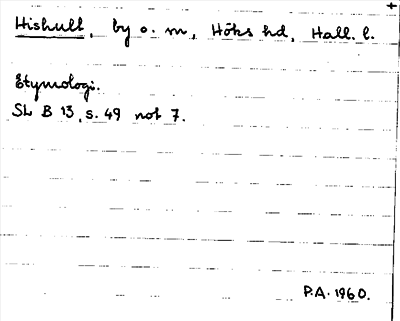 Hishult, by o. m, Höks hd, Hall. l.
Etymologi.
SL B 13, s. 49 not 7.
P.A. 1960.